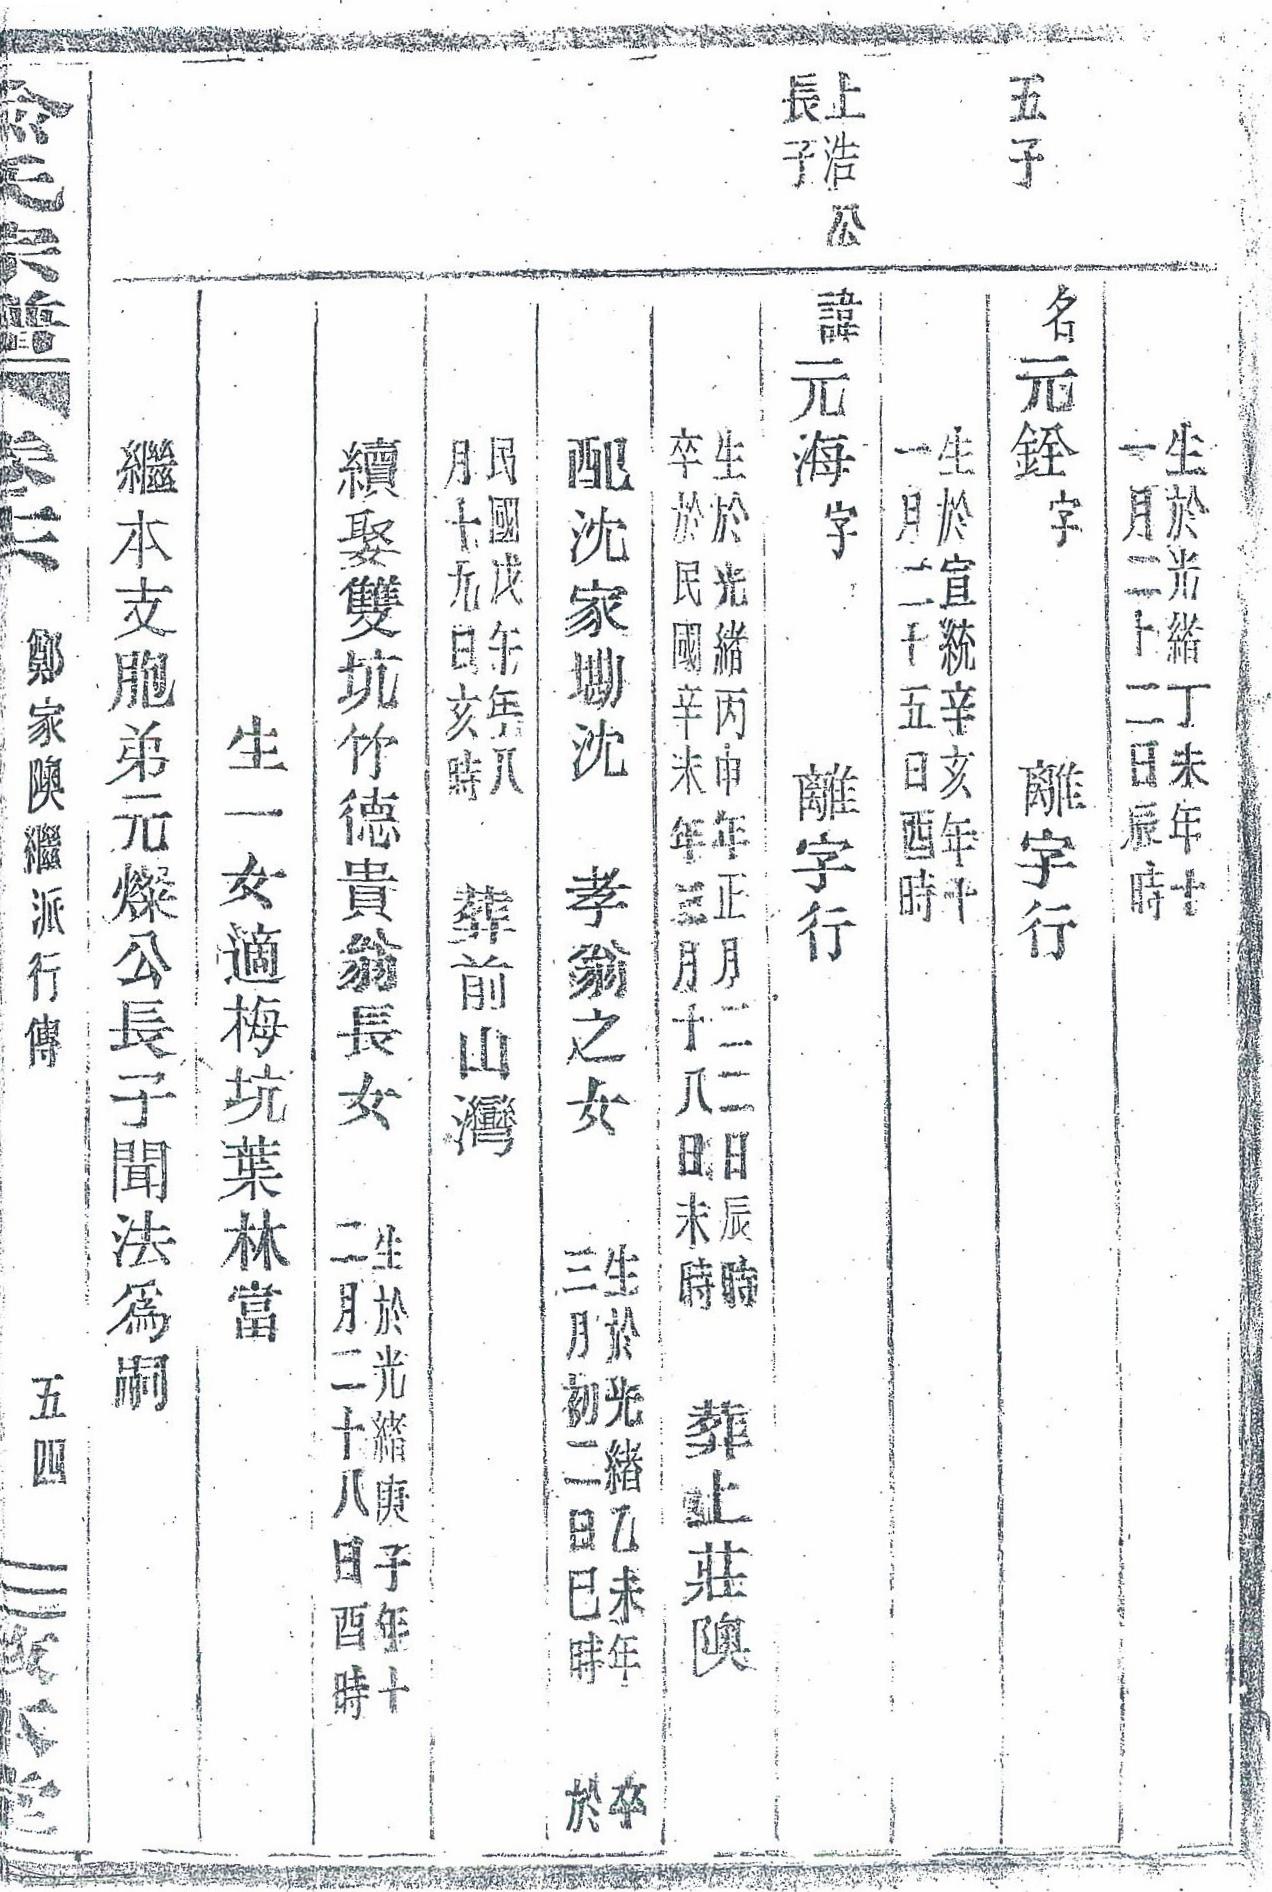 生於光緒丁未年十
一月二十二日辰時
五子
名元銓字 離字行
生於宣統辛亥年十
一月二十五日酉時
上浩公
長子
諱元海字 離字行
生於光緒丙申年正月二二日辰時
卒於民國辛未年三月十八日未時
葬上莊隩
配沈家墈沈 孝翁之女
生於光緒乙未年
三月初二日巳時
卒
於
民國戊午年八
月十九日亥時
葬前山灣
續娶雙坑竹德貴翁長女
生於光緒庚子年十
二月二十八日酉時
生一女適梅坑葉林當
繼本支胞弟元燦公長子聞法為嗣
氏宗譜
鄭家隩繼派行傳
五四